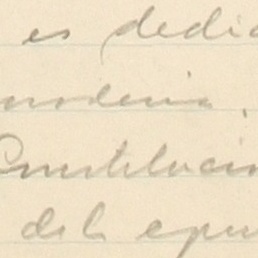 es dedic
moderna.
Constitucion
de la epo